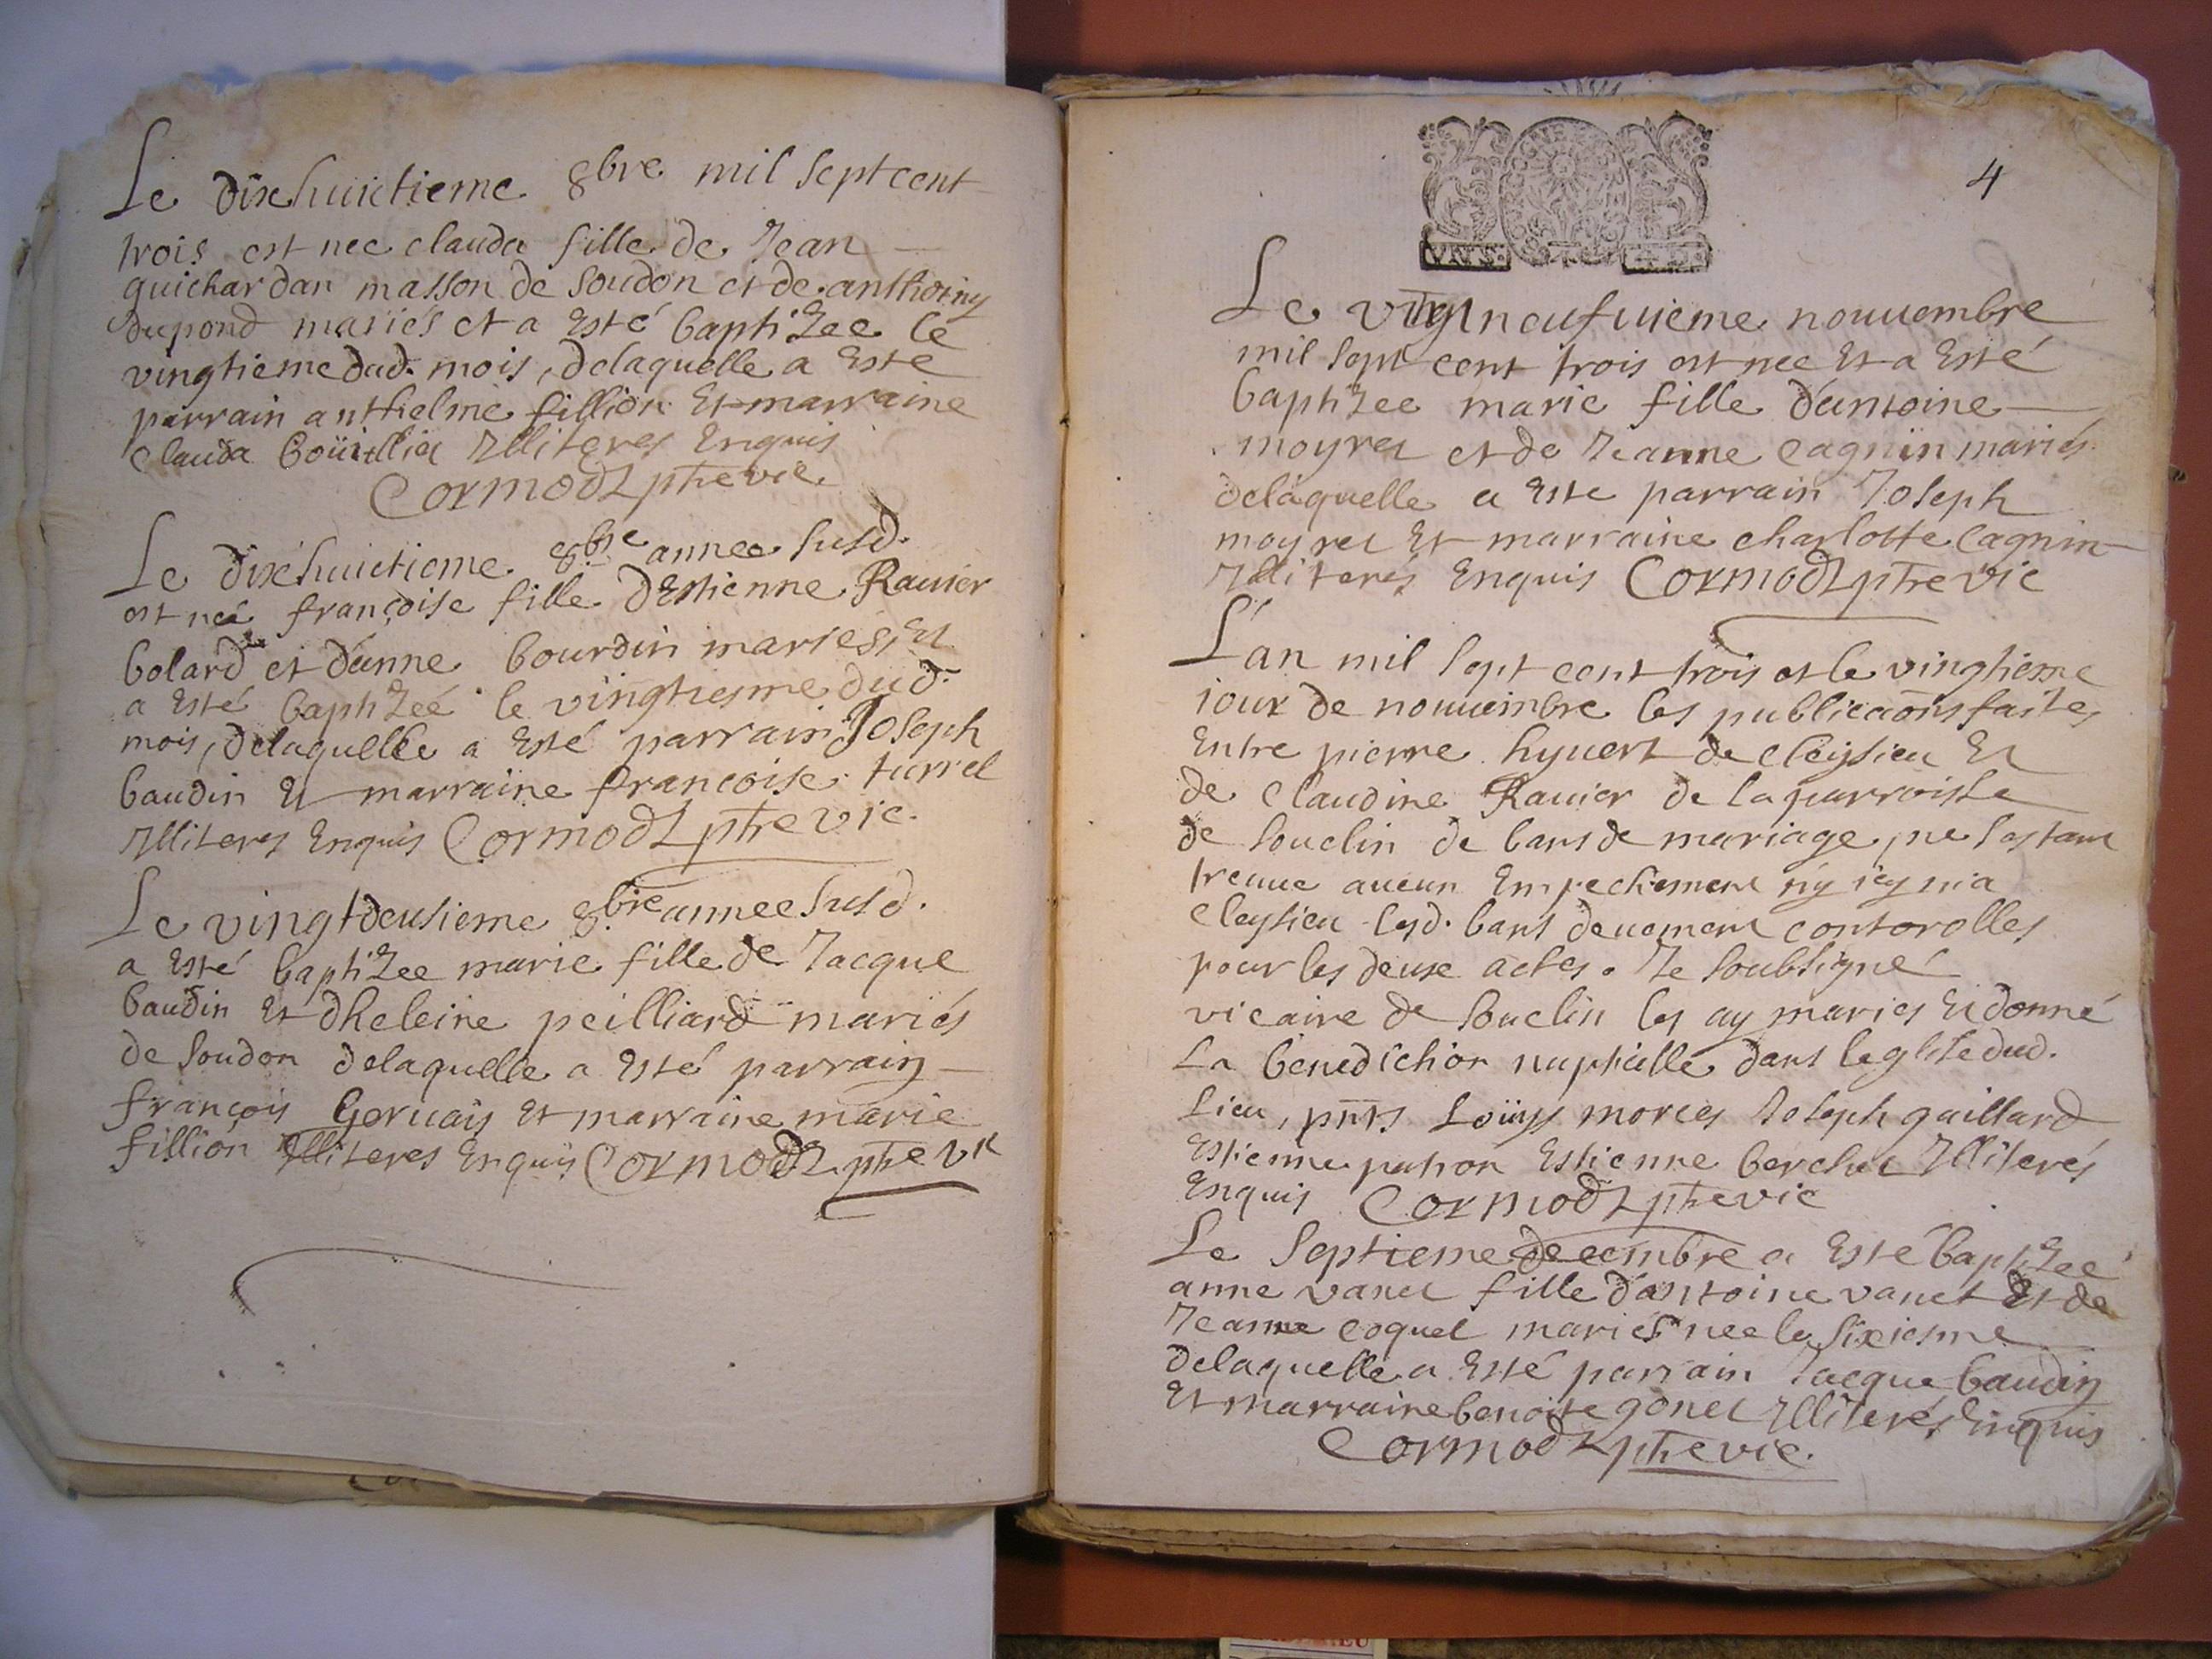 Le dixhuictieme 8bre mil sept cent
trois est nee clauda fille de Jean
guichardan masson de soudon et de anthoiny
dupond mariés et a Esté baptizee le
vingtieme dud. mois, delaquelle a Esté
parrain anthelme fillion Et marraine
clauda boüillia Illiteres Enquis
Cormod ptre vic.
Le dixhuictieme 8bre annee susd.
est neé françoise fille dEstienne Ravier
bolard et d'anne bourdin mariés Et
a Esté baptizeé le vingtiesme dud.
mois, delaquelle a Esté parrain Joseph
baudin Et marraine francoise turrel
Illiteres Enquis Cormod ptre vic.
Le vingtdeusieme 8bre annee susd.
a Esté baptizee marie fille de Jacque
baudin Et dheleine peilliard mariés
de soudon delaquelle a Esté parrain
françois Gervais Et marraine marie
fillion Illiteres Enquis Cormod ptre vic
4
Le vingtneufvieme nouuembre
mil sept cent trois est nee Et a Esté
baptizee marie fille d'antoine
moyret et de Jeanne Cagnin mariés
delaquelle a Este parrain Joseph
moyret Et marraine charlotte Cagnin
Illiterés Enquis Cormod ptre vic
L'an mil sept cent trois et le vingtieme
iour de nouuembre les publicaôns faites
Entre pierre hyvert de cleysieu Et
de Claudine Ravier de la parroisse
de souclin de bans de mariage, ne sestant
treuue aucun Empechement ny icy ni a
cleysieu lesd. bans deuement contorolles
pour les deux actes. Je soubsigné
vicaire de souclin les ay mariés Et donné
La benediction nuptialle dans leglise dud.
Lieu, pnts Loüys morces Joseph gaillard
Estienne patron Estienne berchet Illiterés
Enquis Cormod ptre vic
Le septieme decembre a Esté baptizeé
anne vanet fille d'antoine vanet Et de
Jeanne coquet mariés nee le sixiesme
delaquelle a Esté parrain Jacque baudin
Et marraine benoite gonet Illiterés Enquis
Cormod ptre vic.